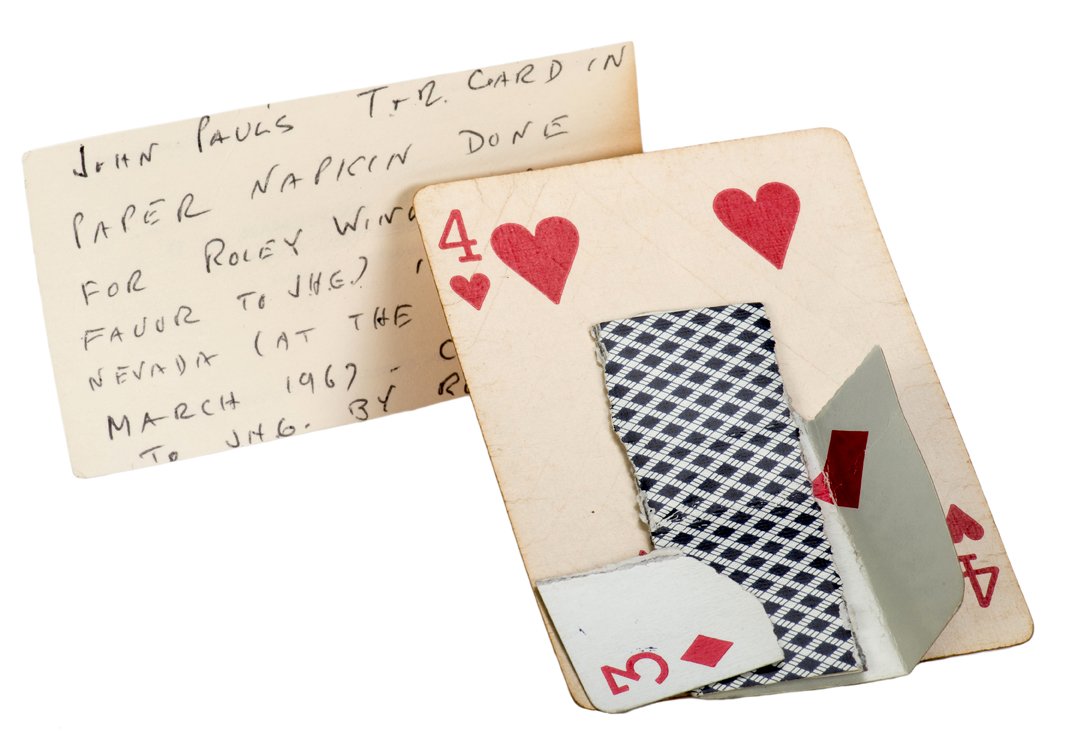 JOHN PAUL'S T+R. CARD IN
PAPER NAPKIN DONE
FOR ROLEY WIN
FAVOR TO J.H.G.)
NEVADA (AT THE
MARCH 1967 - C
TO J.H.G. BY R
4
4
3